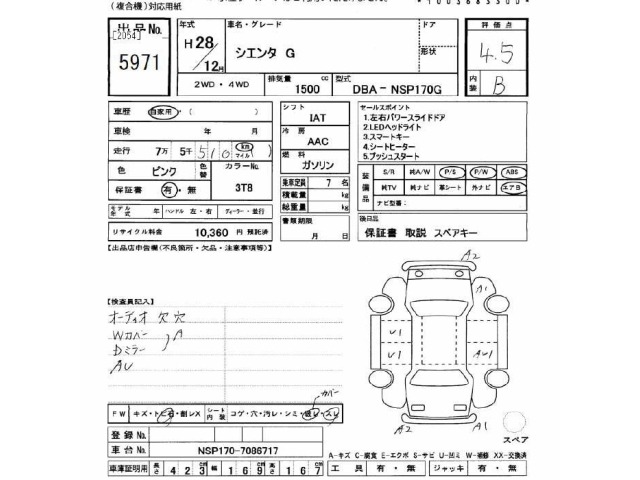 (複合機)対応用紙
出品No.
[2054]
5971
年式
H28/12月
車名・グレード
シエンタ G
ドア
形状
評価点
4.5
内装
B
2WD・4WD
排気量
1500
cc
型式
DBA-NSP170G
車歴
自家用・( )
車検
年 月
走行
7万 5千 510
km
マイル
色
ピンク
色替
カラーNo.
3T8
保証書
有・無
モデル年式
年
ハンドル 左・右
ディーラー・並行
リサイクル料金
10,360 円 預託済
シフト
IAT
冷房
AAC
燃料
ガソリン
乗車定員
7 名
積載量
kg
総重量
kg
書類期限
月 日
セールスポイント
1.左右パワースライドドア
2.LEDヘッドライト
3.スマートキー
4.シートヒーター
5.プッシュスタート
装備品
S/R
純A/W
P/S
P/W
ABS
純TV
純ナビ
革シート
外ナビ
エアB
ナビ型番:
後日品
保証書 取説 スペアキー
【出品店申告欄(不良箇所・欠品・注意事項等)】
【検査員記入】
オーディオ 欠 穴
Wカバー
Dミラー
A
AU
カバー
FW
キズ・トビ石・割レX
シート内装
コゲ・穴・汚レ・シミ・破レ・スレ
登録No.
車台No.
NSP170-7086717
車庫証明用
長さ 423cm 幅 169cm 高さ 167cm
A2
A1
U1
U1
U1
AU1
A2
A1
スペア
A-キズ C-腐食 E-エクボ S-サビ U-凹ミ W-補修 XX-交換済
工具 有・無
ジャッキ 有・無